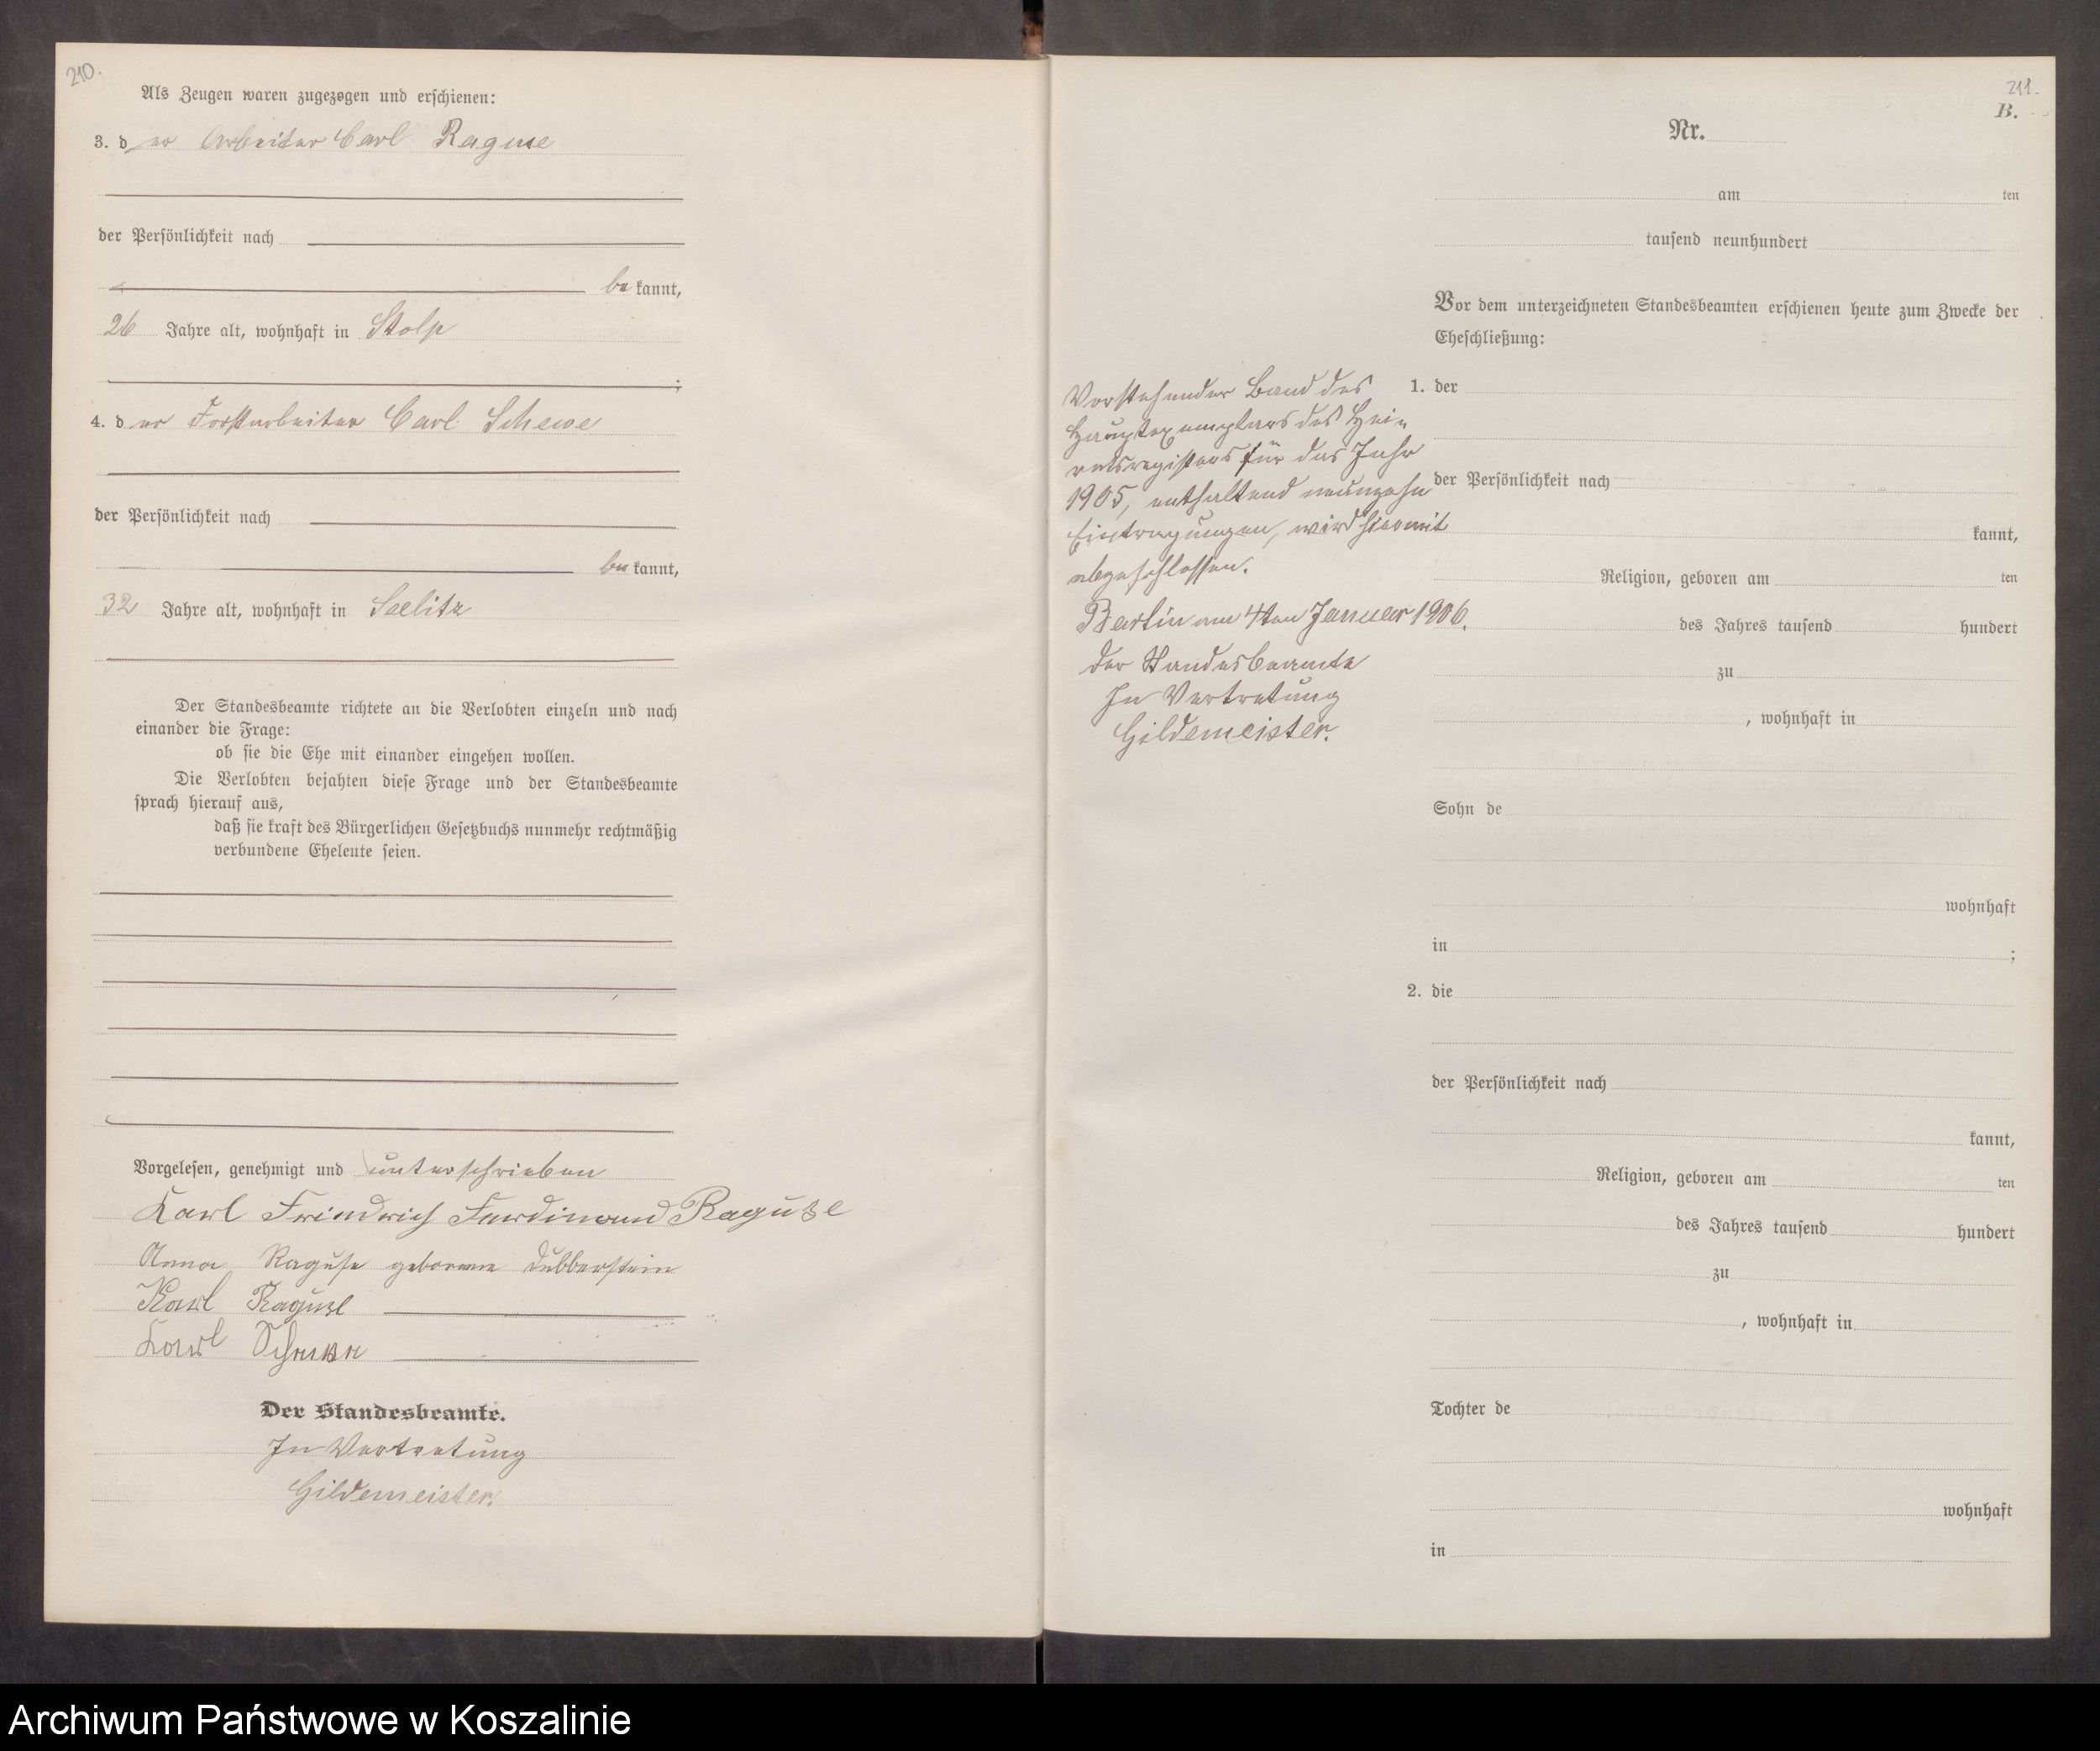 210.
Als Zeugen waren zugezogen und erschienen:
3. der Arbeiter Carl Raguse
der Persönlichkeit nach
bekannt,
26 Jahre alt, wohnhaft in Stolp
;
4. der Forstarbeiter Carl Schewe
der Persönlichkeit nach
bekannt,
32 Jahre alt, wohnhaft in Seelitz
Der Standesbeamte richtete an die Verlobten einzeln und nach
einander die Frage:
ob sie die Ehe mit einander eingehen wollen.
Die Verlobten bejahten diese Frage und der Standesbeamte
sprach hierauf aus,
daß sie kraft des Bürgerlichen Gesetzbuchs nunmehr rechtmäßig
verbundene Eheleute seien.
Vorgelesen, genehmigt und unterschrieben
Karl Friedrich Ferdinand Raguse
Anna Raguse geborene Dubberstein
Karl Raguse
Karl Schewe
Der Standesbeamte.
In Vertretung
Gildemeister.
211.
B.
Nr.
am ten
tausend neunhundert
Vor dem unterzeichneten Standesbeamten erschienen heute zum Zwecke der
Eheschließung:
Vorstehender Band des
Hauptexemplars des Hei-
ratsregisters für das Jahr
1905, enthaltend neunzehn
Eintragungen, wird hiermit
abgeschlossen.
Bartin am 4ten Januar 1906.
Der Standesbeamte
In Vertretung
Gildemeister.
1. der
der Persönlichkeit nach
kannt,
Religion, geboren am ten
des Jahres tausend hundert
zu
, wohnhaft in
Sohn de
wohnhaft
in ;
2. die
der Persönlichkeit nach
kannt,
Religion, geboren am ten
des Jahres tausend hundert
zu
, wohnhaft in
Tochter de
wohnhaft
in
Archiwum Państwowe w Koszalinie